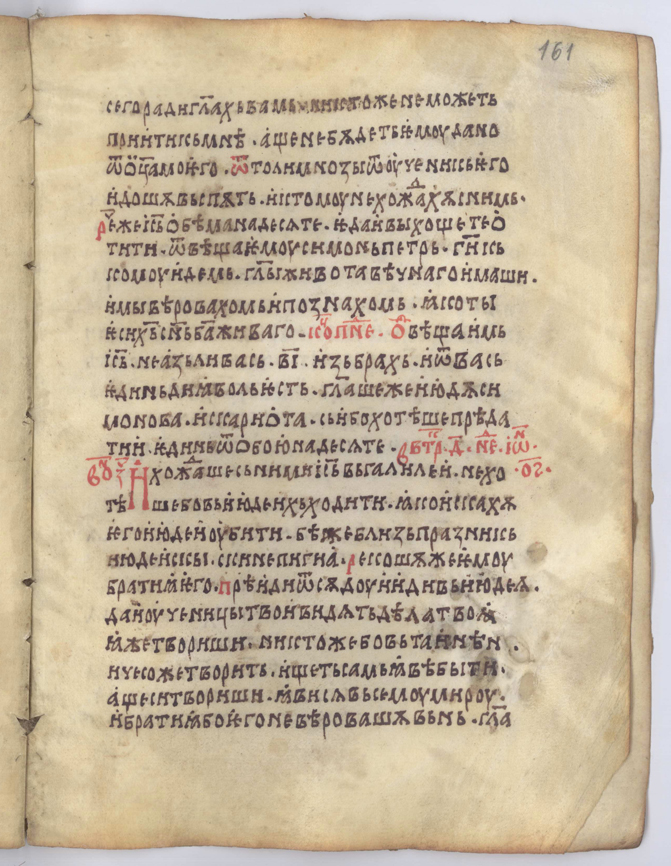 161
сегорадигл҃ахьвамь никтожеможеть
приитикьмнѣ · ащенебѫдетьѥмоудано
ѿѡц҃амоѥго · ѿтолимноꙁыѿоученикьѥго
идошѫвьспѧть · иктомоунехождахѫснимь ·
режеіс҃ьобѣманадесѧте · ѥдаивыхощетео
тити · ѿвѣщаѥмоусимоньпетрь · ги҃кь
комоуидемь · гл҃ыживотавѣчнагоимаши ·
имывѣровахомьипоꙁнахомь · ꙗкоты
ѥсих҃ьсн҃ьб҃аживаго · коⷰ҇пⷩ҇е · Ѿвѣщаимь
іс҃ь · неаꙁьливась · в҃і · иꙁьбрахь · иѿвась
ѥдиньдиꙗвольѥсть · гл҃ашежеиюдѫси
монова · искариота · сьибохотѣшепрѣда
тии · ѥдиньѿобоюнадесѧте · вьтр҃ · д҃ · не҃ · іѡ҃ ·
вⷪ҇ Ихождашеснимиіс҃ьвьгалилеи · нехо · ог҃ ·
тѣшебовьиюдеихьходити · ꙗкоискахѫ
ѥгоиюдеиоубити · бѣжеблиꙁьпраꙁникь
июдеискы · скинепигиа · рекошѫжеѥмоу
братиꙗѥго · прѣидиѿсѫдоуиидивьиюдеѫ ·
даиоученицытвоивидѧтьдѣлатвоꙗ
ꙗжетвориши · никтожебовьтаинѣ
ичесожетворить · ищетьсамьꙗвѣбыти ·
ащеситвориши · ꙗвисѧвьсемоумироу ·
ибратиꙗбоѥгоневѣровашѫвьнь · гл҃а